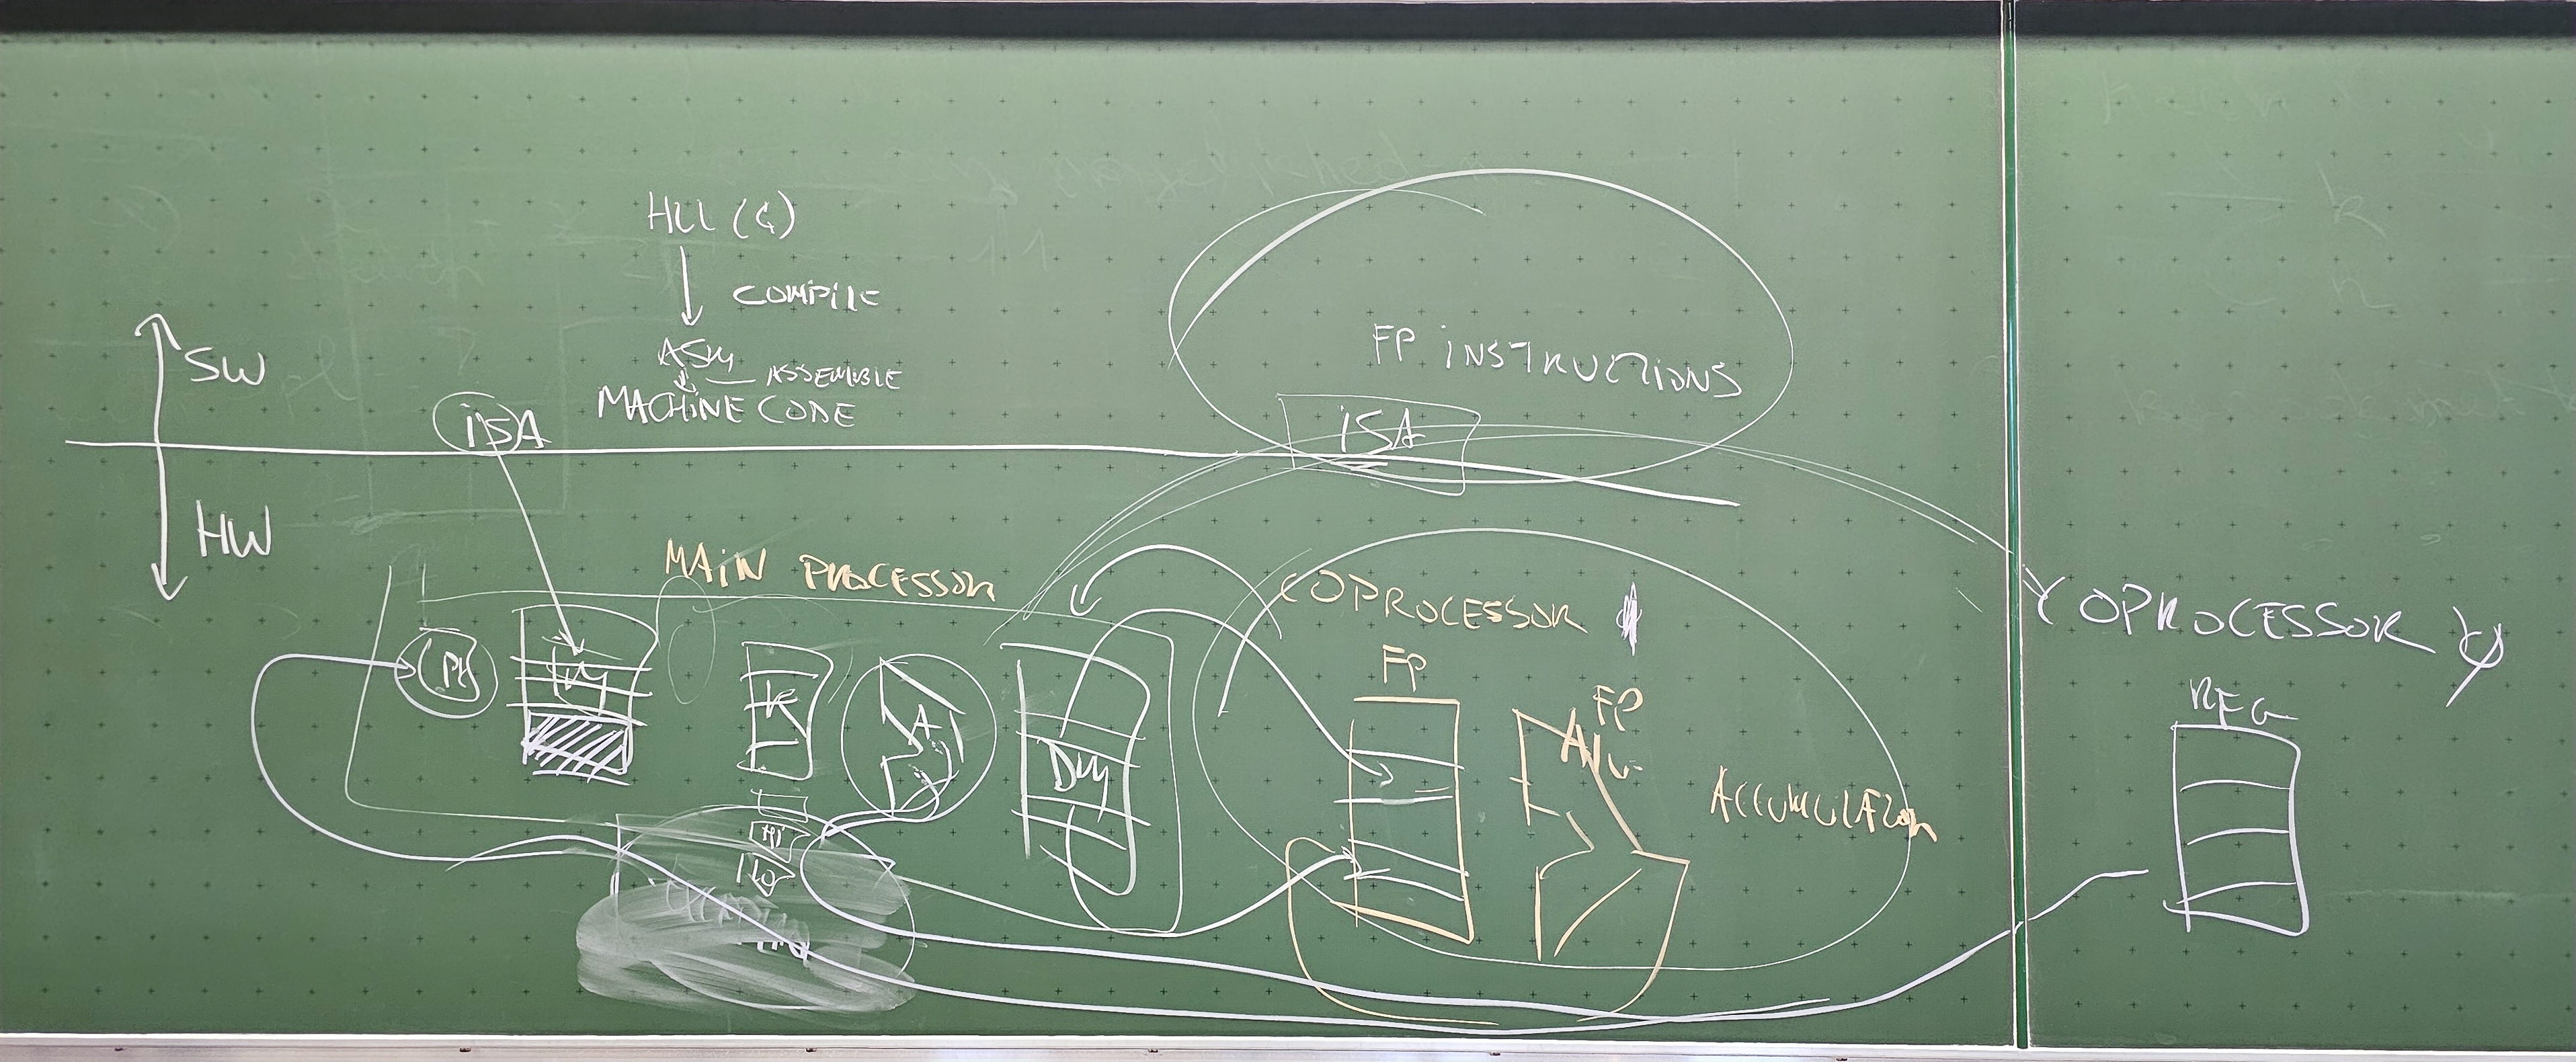 HLL (C)
COMPILE
ASM
ASSEMBLE
MACHINE CODE
SW
ISA
HW
FP INSTRUCTIONS
ISA
MAIN PROCESSOR
IM
R
A
DM
HI
LO
COPROCESSOR 1
FP
FP
ALU
ACCUMULATION
COPROCESSOR 0
REG